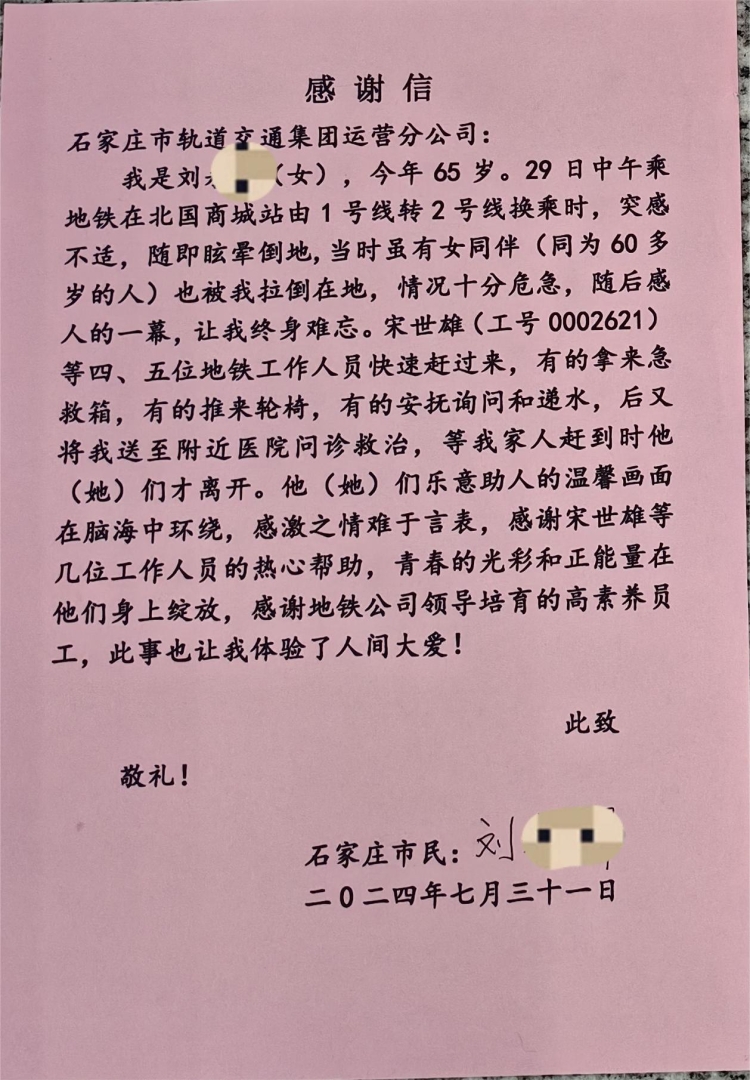 感谢信
石家庄市轨道交通集团运营分公司：
我是刘（女），今年65岁。29日中午乘
地铁在北国商城站由1号线转2号线换乘时，突感
不适，随即眩晕倒地，当时虽有女同伴（同为60多
岁的人）也被我拉倒在地，情况十分危急，随后感
人的一幕，让我终身难忘。宋世雄（工号0002621）
等四、五位地铁工作人员快速赶过来，有的拿来急
救箱，有的推来轮椅，有的安抚询问和递水，后又
将我送至附近医院问诊救治，等我家人赶到时他
（她）们才离开。他（她）们乐意助人的温馨画面
在脑海中环绕，感激之情难于言表，感谢宋世雄等
几位工作人员的热心帮助，青春的光彩和正能量在
他们身上绽放，感谢地铁公司领导培育的高素养员
工，此事也让我体验了人间大爱！
此致
敬礼！
石家庄市民：刘
二0二四年七月三十一日